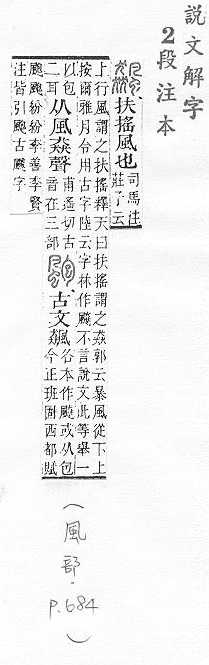 說文解字
2段注本
扶搖風也 司馬注
莊子云
上行風謂之扶搖釋天曰扶搖謂之猋郭云暴風從下上
按爾雅月令用古字陸云字林作飆不言說文此等舉一
以包
二耳
从風猋聲
甫遙切古
音在三部
古文飆
各本作飆或从包
今正班固西都賦
颮颮紛紛李善李賢
注皆引飆古颮字
(風部.
P.684)